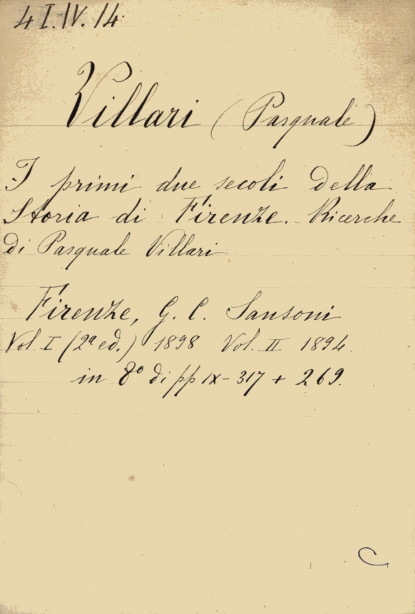 4 I.IV.14
Villari (Pasquale)
I primi due secoli della
Storia di Firenze. Ricerche
di Pasquale Villari
Firenze, G. C. Sansoni
Vol. I (2ª ed.) 1898 Vol. II 1894.
in 8º di pp IX-317 + 269.
C